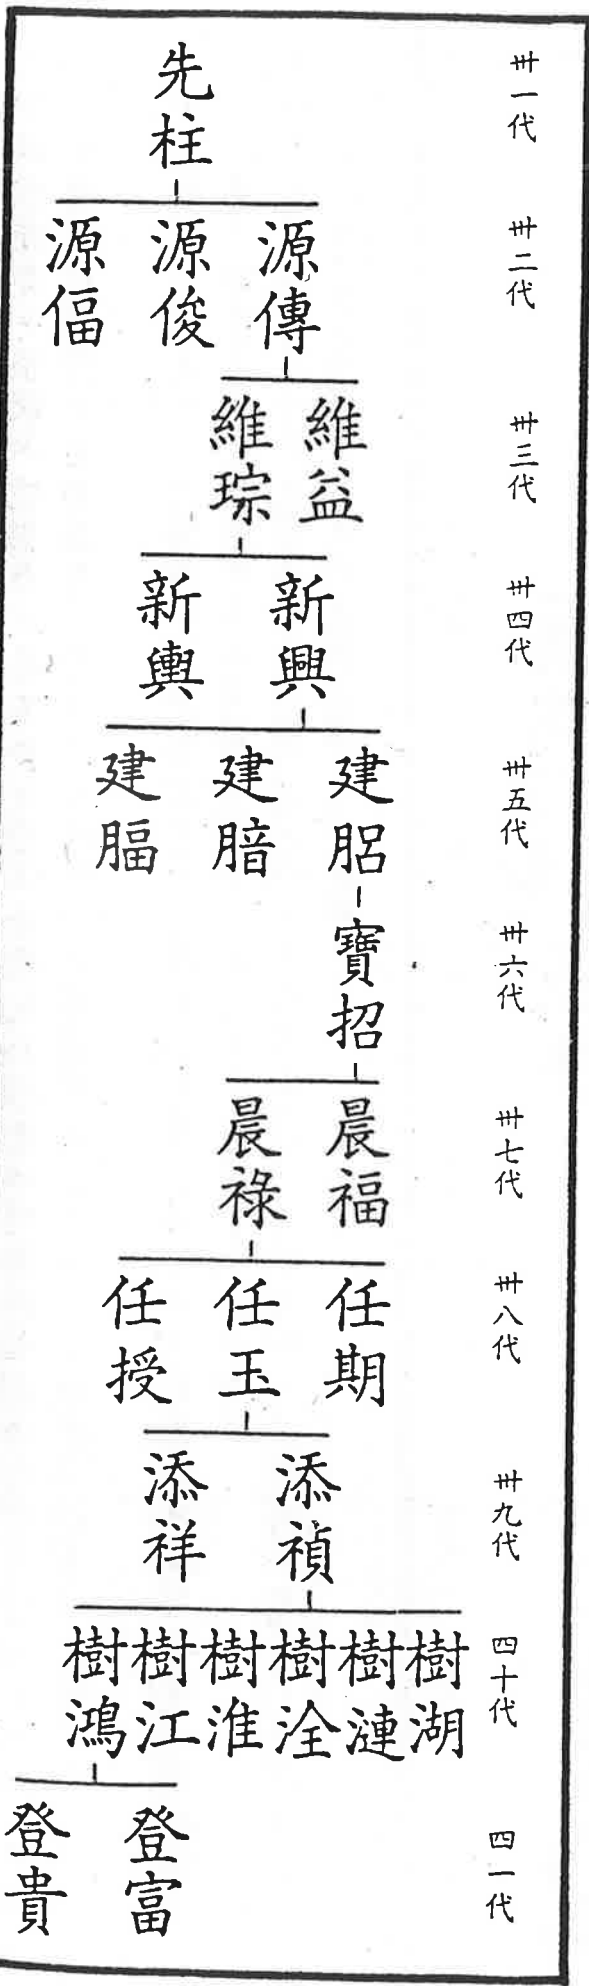 卅一代
先柱
卅二代
源傳
源俊
源偪
卅三代
維益
維琮
卅四代
新興
新輿
卅五代
建
建腤
建腷
卅六代
寶招
卅七代
晨福
晨祿
卅八代
任期
任玉
任授
卅九代
添禎
添祥
四十代
樹湖
樹漣
樹洤
樹淮
樹江
樹鴻
四一代
登富
登貴